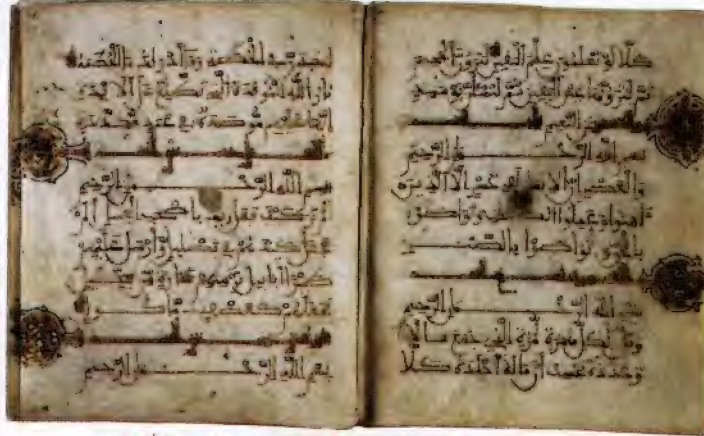 كلا لو تعلمون علم اليقين لترون الجحيم
ثم لترونها عين اليقين ثم لتسلن يومئذ
عن النعيم
بسم الله الرحمن الرحيم
والعصر ان الانسان لفي خسر الا الذين
ءامنوا وعملوا الصلحت وتواصوا
بالحق وتواصوا بالصبر
بسم الله الرحمن الرحيم
ويل لكل همزة لمزة الذي جمع مالا
وعدده يحسب ان ماله اخلده كلا
لينبذن في الحطمة وما ادريك ما الحطمة
نار الله الموقدة التي تطلع على الافئدة
انها عليهم موصدة في عمد ممددة
بسم الله الرحمن الرحيم
الم تر كيف فعل ربك باصحب الفيل الم
يجعل كيدهم في تضليل وارسل عليهم
طيرا ابابيل ترميهم بحجارة من سجيل
فجعلهم كعصف ماكول
بسم الله الرحمن الرحيم